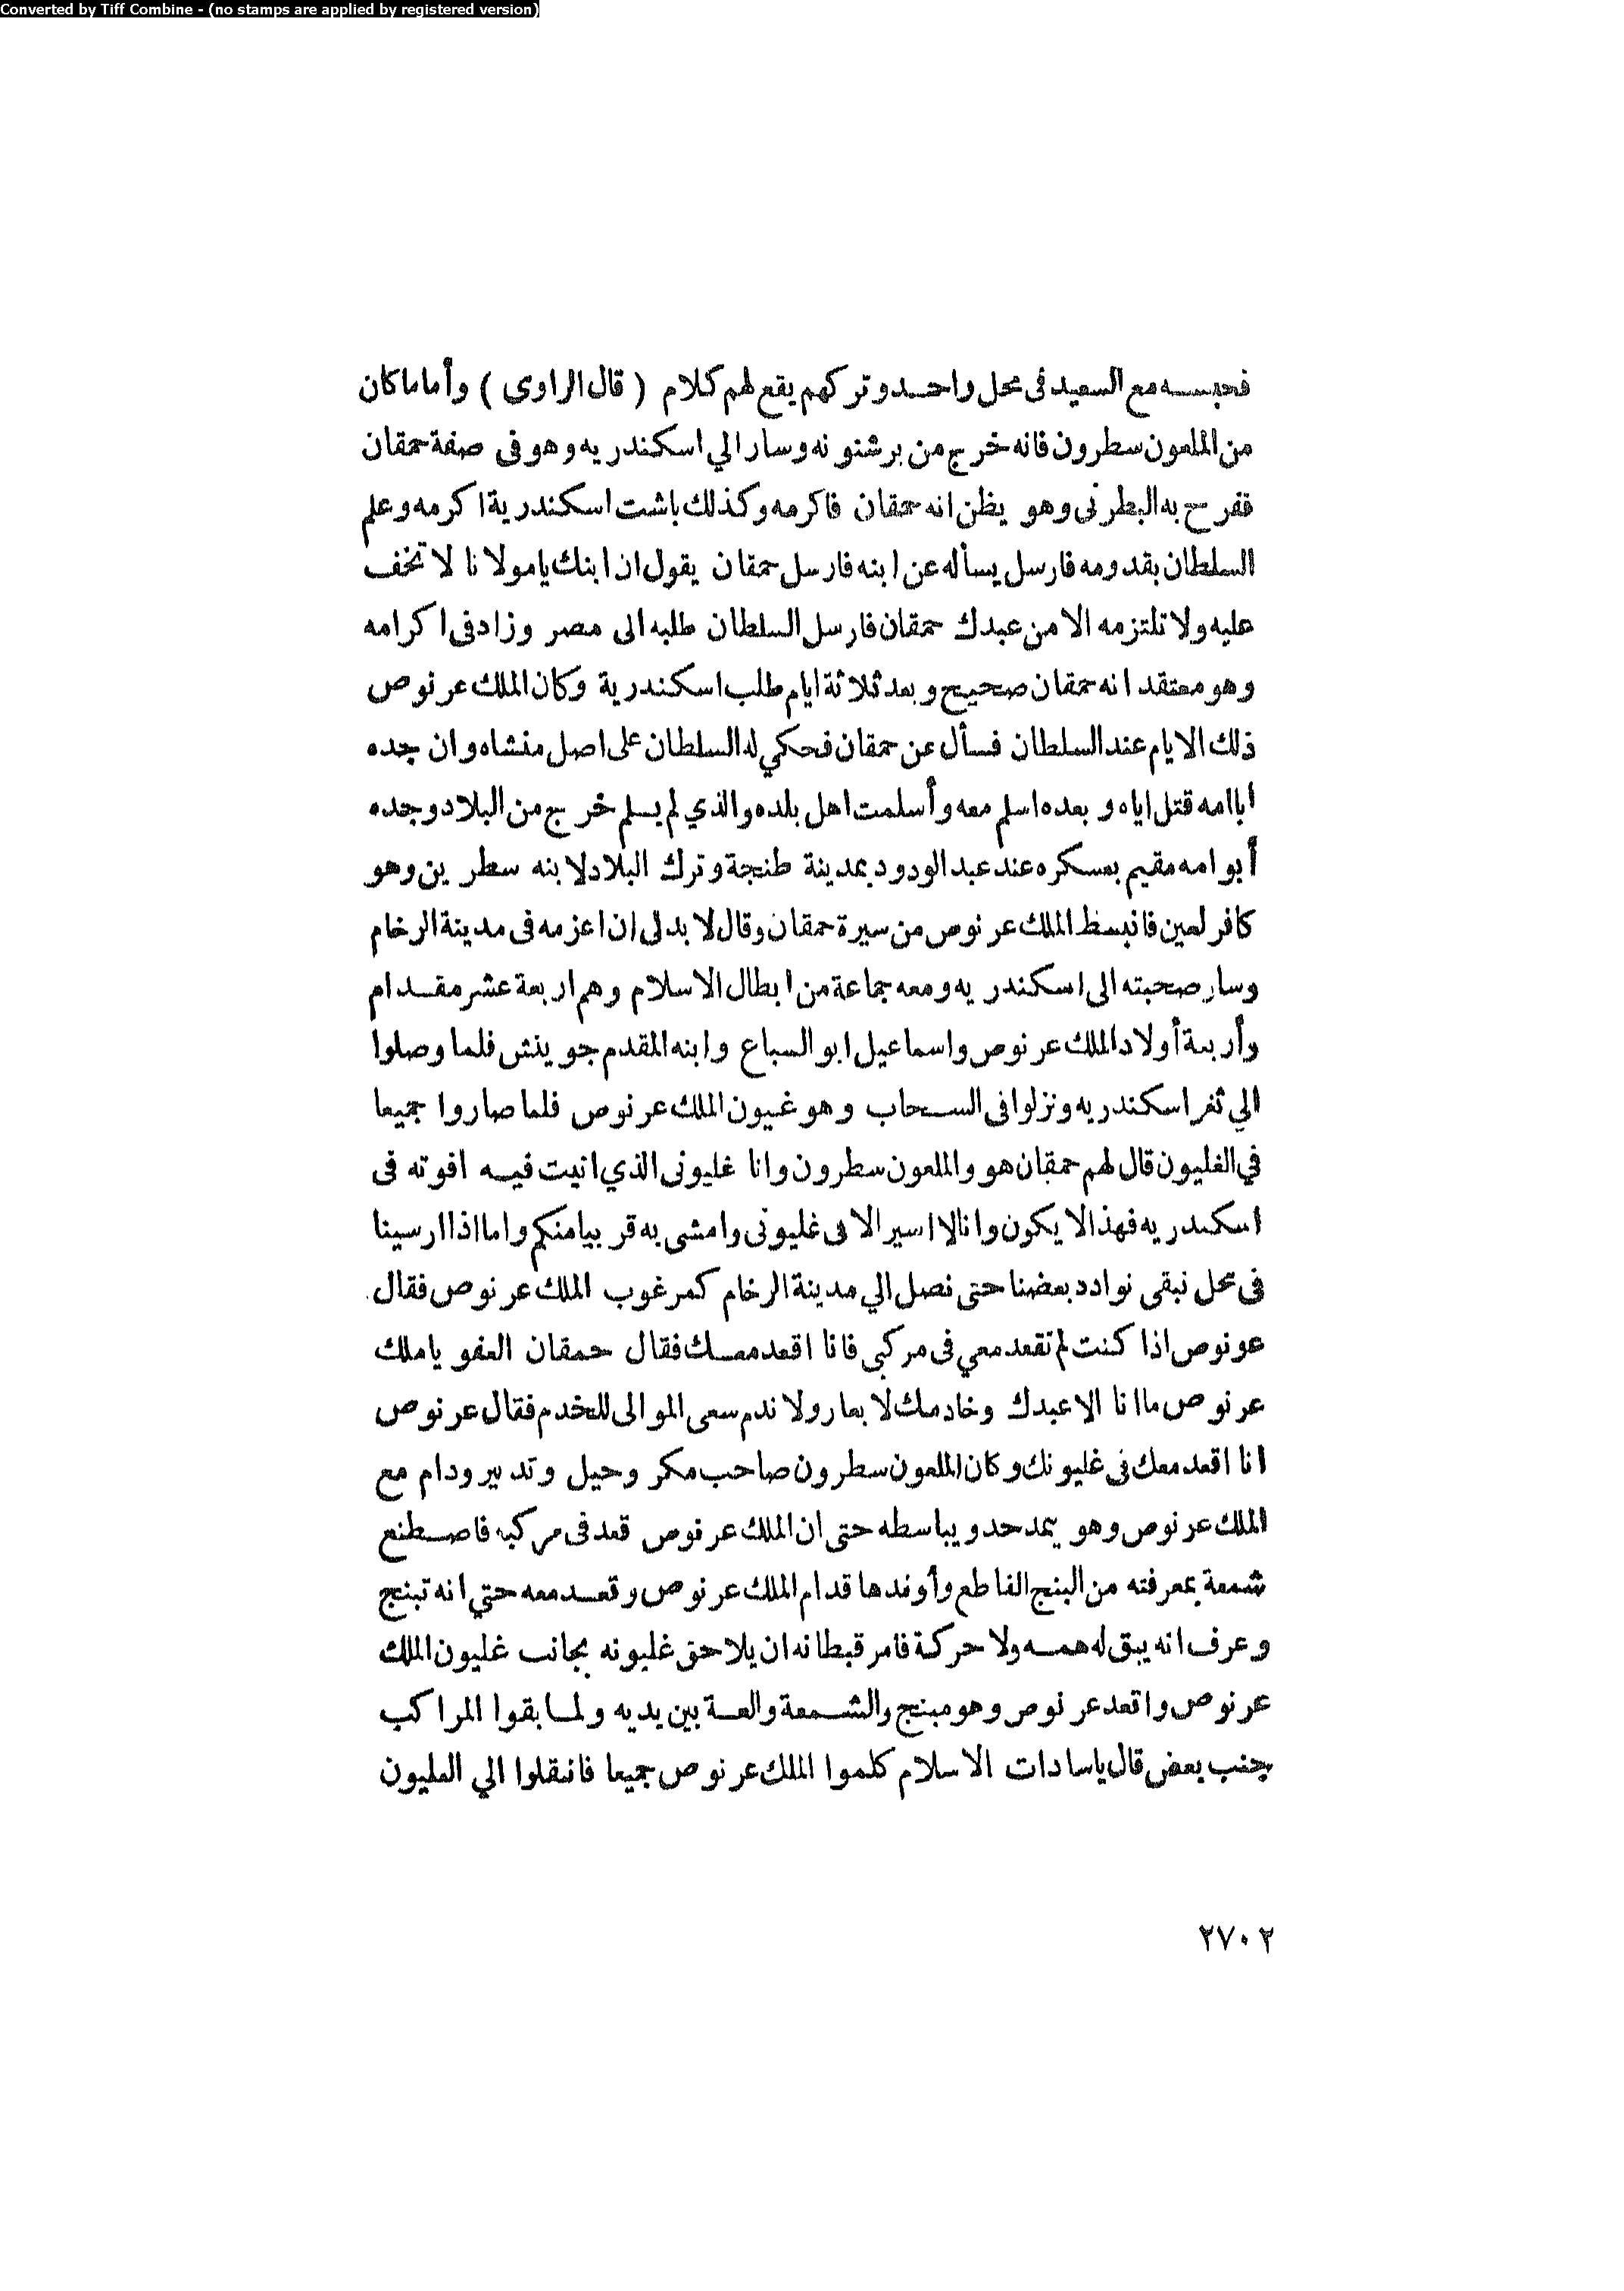 Converted by Tiff Combine - (no stamps are applied by registered version)
فحبسه مع السعيد فى محل واحد وتركهم يقع لهم كلام ( قال الراوى ) وأما ما كان
من الملعون سطرون فانه خرج من برشنونه وسار الي اسكندريه وهو فى صفة حمقان
ففرح به البطرنى وهو يظن انه حمقان فاكرمه وكذلك باشت اسكندرية اكرمه وعلم
السلطان بقدومه فارسل يسأله عن ابنه فارسل حمقان يقول ان ابنك يا مولانا لا تخف
عليه ولا تلتزمه الا من عبدك حمقان فارسل السلطان طلبه الى مصر وزاد فى اكرامه
وهو معتقد انه حمقان صحيح وبعد ثلاثة ايام طلب اسكندرية وكان الملك عرنوص
ذلك الايام عند السلطان فسأل عن حمقان فحكي له السلطان على اصل منشاه وان جده
ابا امه قتل اباه و بعده اسلم معه وأسلمت اهل بلده والذي لم يسلم خرج من البلاد وجده
أبو امه مقيم بعسكره عند عبد الودود بمدينة طنجة وترك البلاد لابنه سطرين وهو
كافر لعين فانبسط الملك عرنوص من سيرة حمقان وقال لا بد لى ان اعزمه فى مدينة الرخام
وسار صحبته الى اسكندريه ومعه جماعة من ابطال الاسلام وهم اربعة عشر مقدام
وأربعة أولاد الملك عرنوص واسماعيل ابو السباع وابنه المقدم جوينش فلما وصلوا
الي ثغر اسكندريه ونزلوا فى السحاب وهو غيون الملك عرنوص فلما صاروا جميعا
في الغليون قال لهم حمقان هو والملعون سطرون وانا غليونى الذي اتيت فيه افوته فى
اسكندريه فهذا لا يكون وانا لا اسير الا فى غليونى وامشى به قريبا منكم واما اذا ارسينا
فى محل نبقى نوادد بعضنا حتى نصل الي مدينة الرخام كمرغوب الملك عرنوص فقال
عونوص اذا كنت لم تقعد معي فى مركبى فانا اقعد معك فقال حمقان العفو يا ملك
عرنوص ما انا الا عبدك وخادمك لا بعار ولا ندم سعى الموالى للخدم فقال عرنوص
انا اقعد معك فى غليونك وكان الملعون سطرون صاحب مكر وحيل وتدبير ودام مع
الملك عرنوص وهو يمدحد ويباسطه حتى ان الملك عرنوص قعد فى مركبه فاصطنع
شمعة بمعرفته من البنج القاطع وأوقدها قدام الملك عرنوص وقعد معه حتي انه تبنج
وعرف انه يبق له همه ولا حركة فامر قبطانه ان يلاحق غليونه بجانب غليون الملك
عرنوص واقعد عرنوص وهو مبنج والشمعة والعة بين يديه ولما بقوا المراكب
بجنب بعض قال يا سادات الاسلام كلموا الملك عرنوص جميعا فانتقلوا الي الغليون
٢٧٠٢